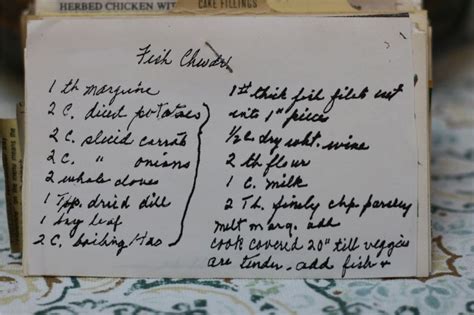 HERBED CHICKEN WITH
CAKE FILLINGS
Fish Chowder
1 tb margarine
2 C. diced potatoes
2 C. sliced carrots
2 C. " onions
2 whole cloves
1 Tsp. dried dill
1 bay leaf
2 C. boiling H20
1# thick fish filets cut
into 1" pieces
1/2 C. dry wht. wine
2 tb flour
1 C. milk
2 Tb. finely chp. parsley
melt marg. add
cook covered 20" till veggies
are tender. add fish +